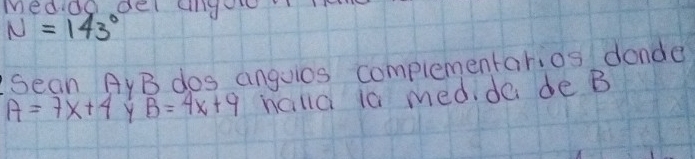 Medida del angulo
N = 143°
Sean A y B dos angulos complementarios donde
A = 7x+4 y B = 4x+9 halla la medida de B